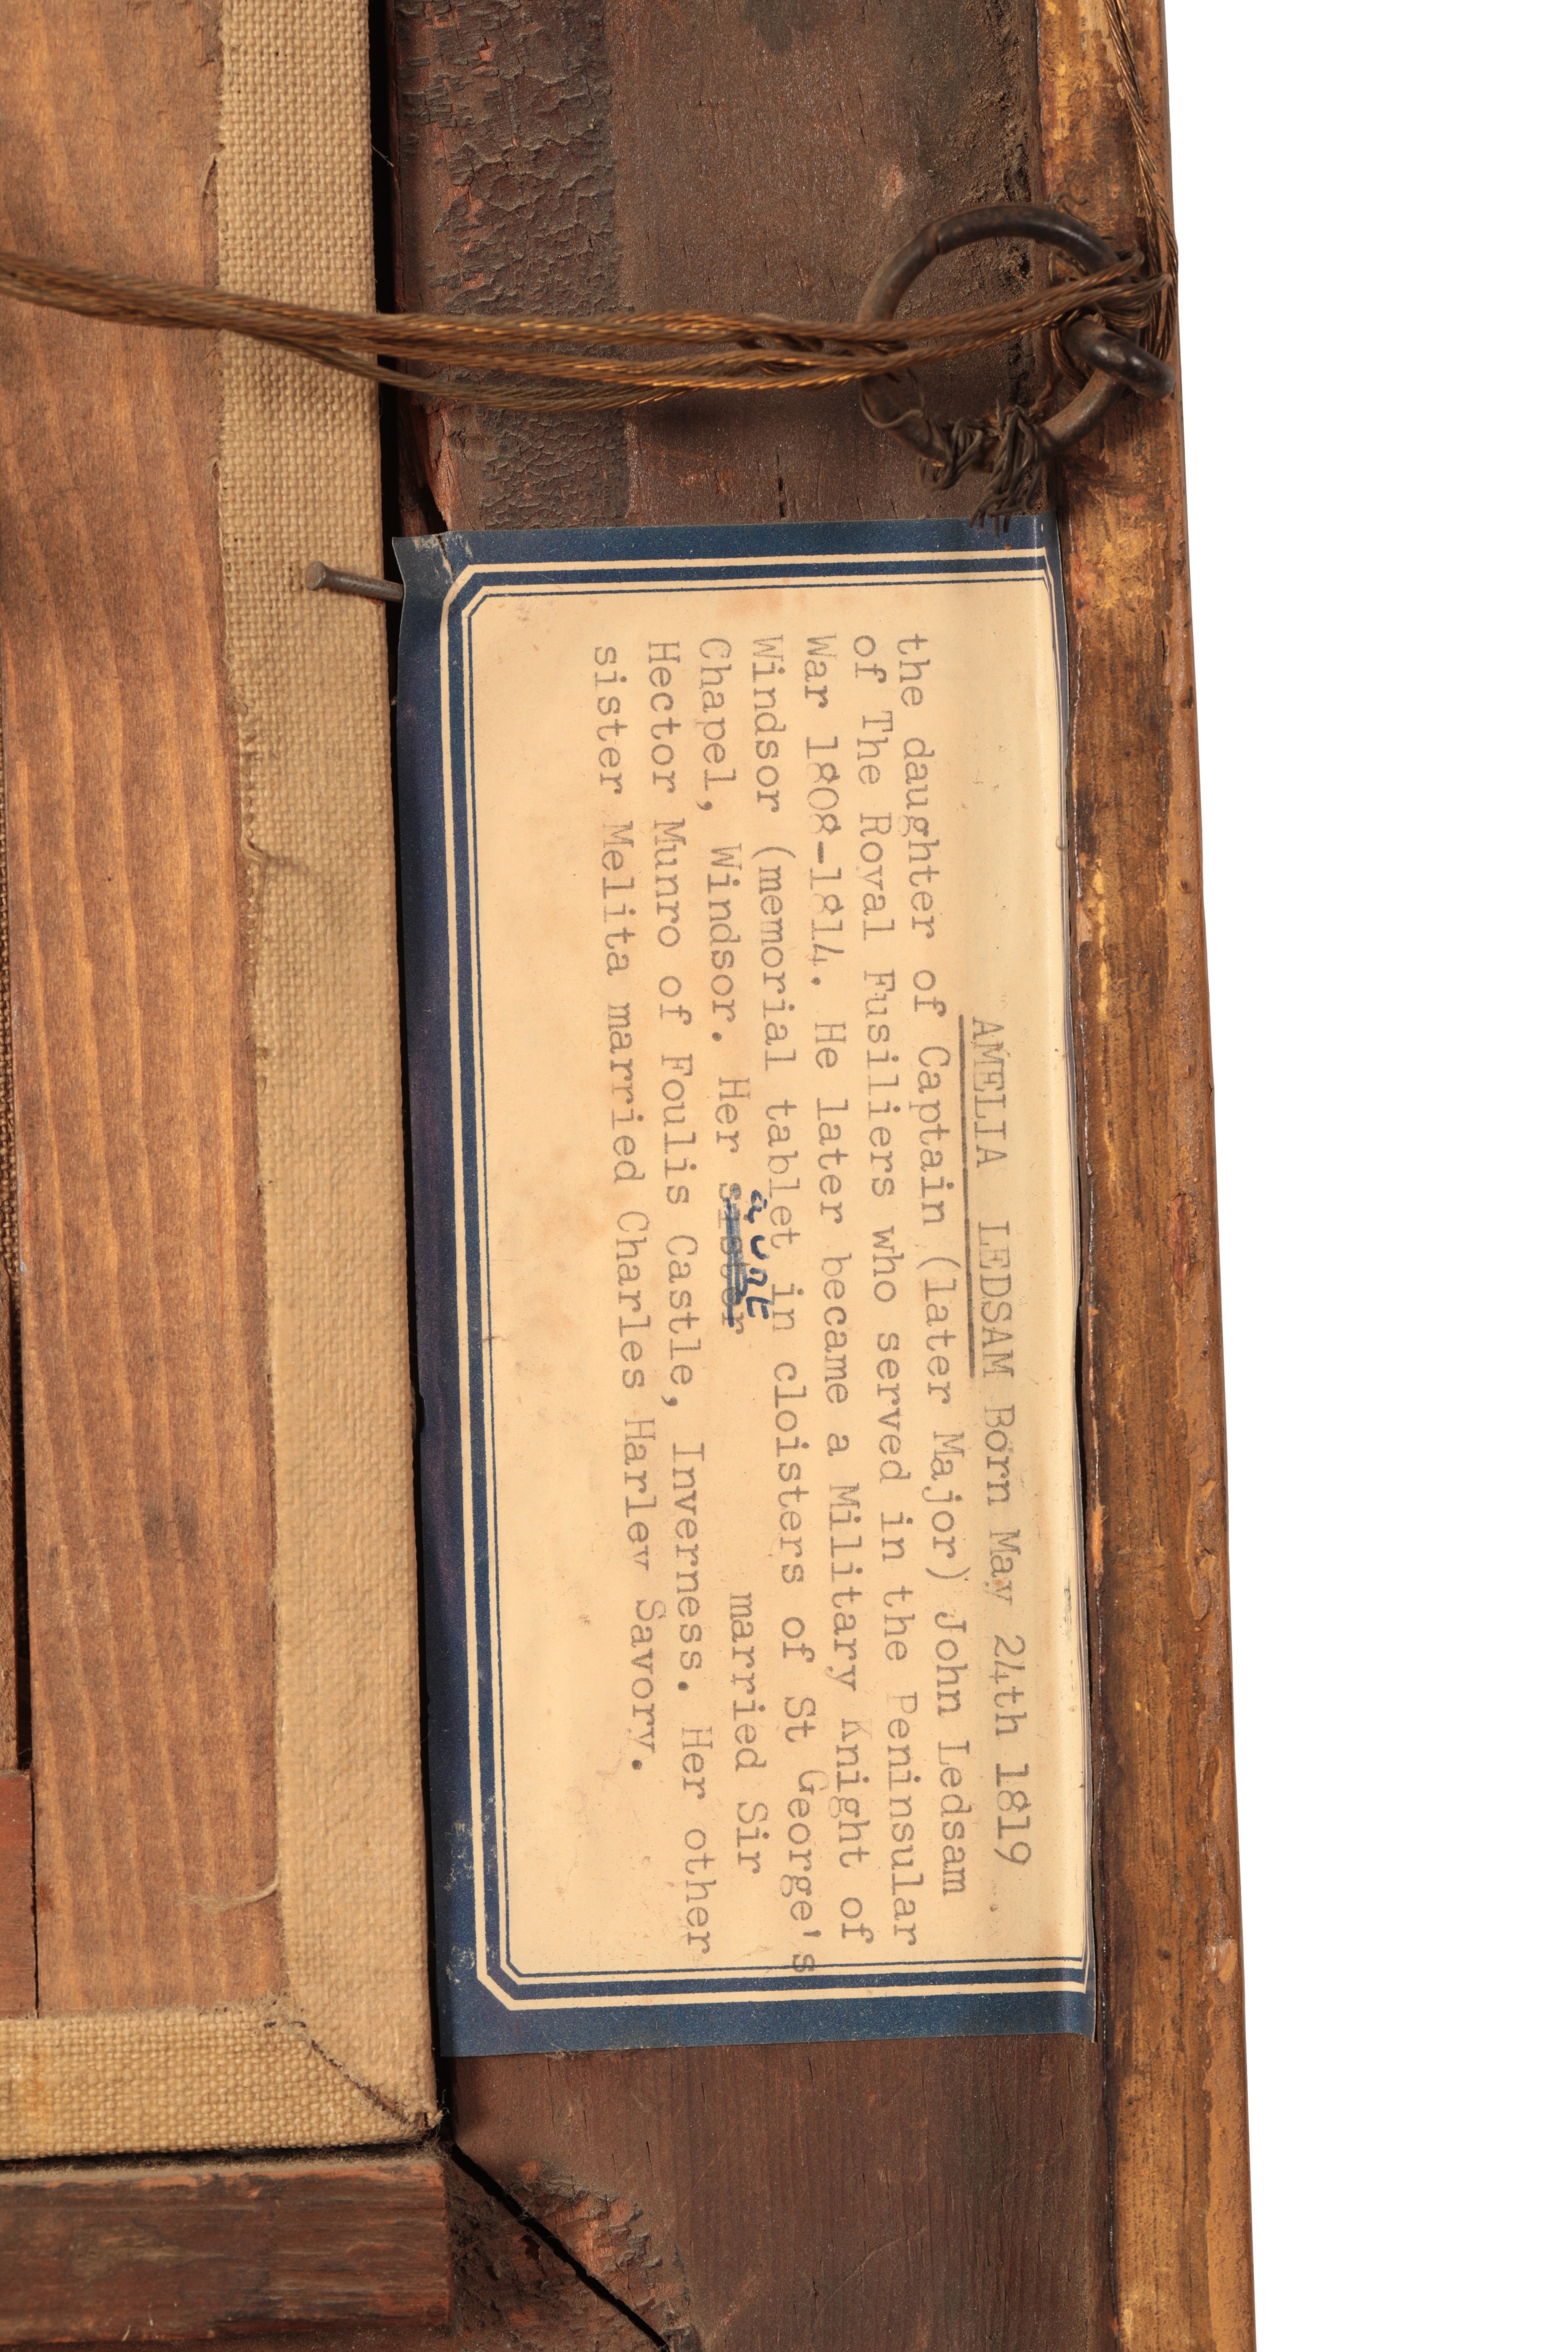 AMELIA LEDSAM Born May 24th 1819
the daughter of Captain (later Major) John Ledsam
of The Royal Fusiliers who served in the Peninsular
War 1808-1814. He later became a Military Knight of
Windsor (memorial tablet in cloisters of St George's
Chapel, Windsor. Her sister aunt married Sir
Hector Munro of Foulis Castle, Inverness. Her other
sister Melita married Charles Harley Savory.